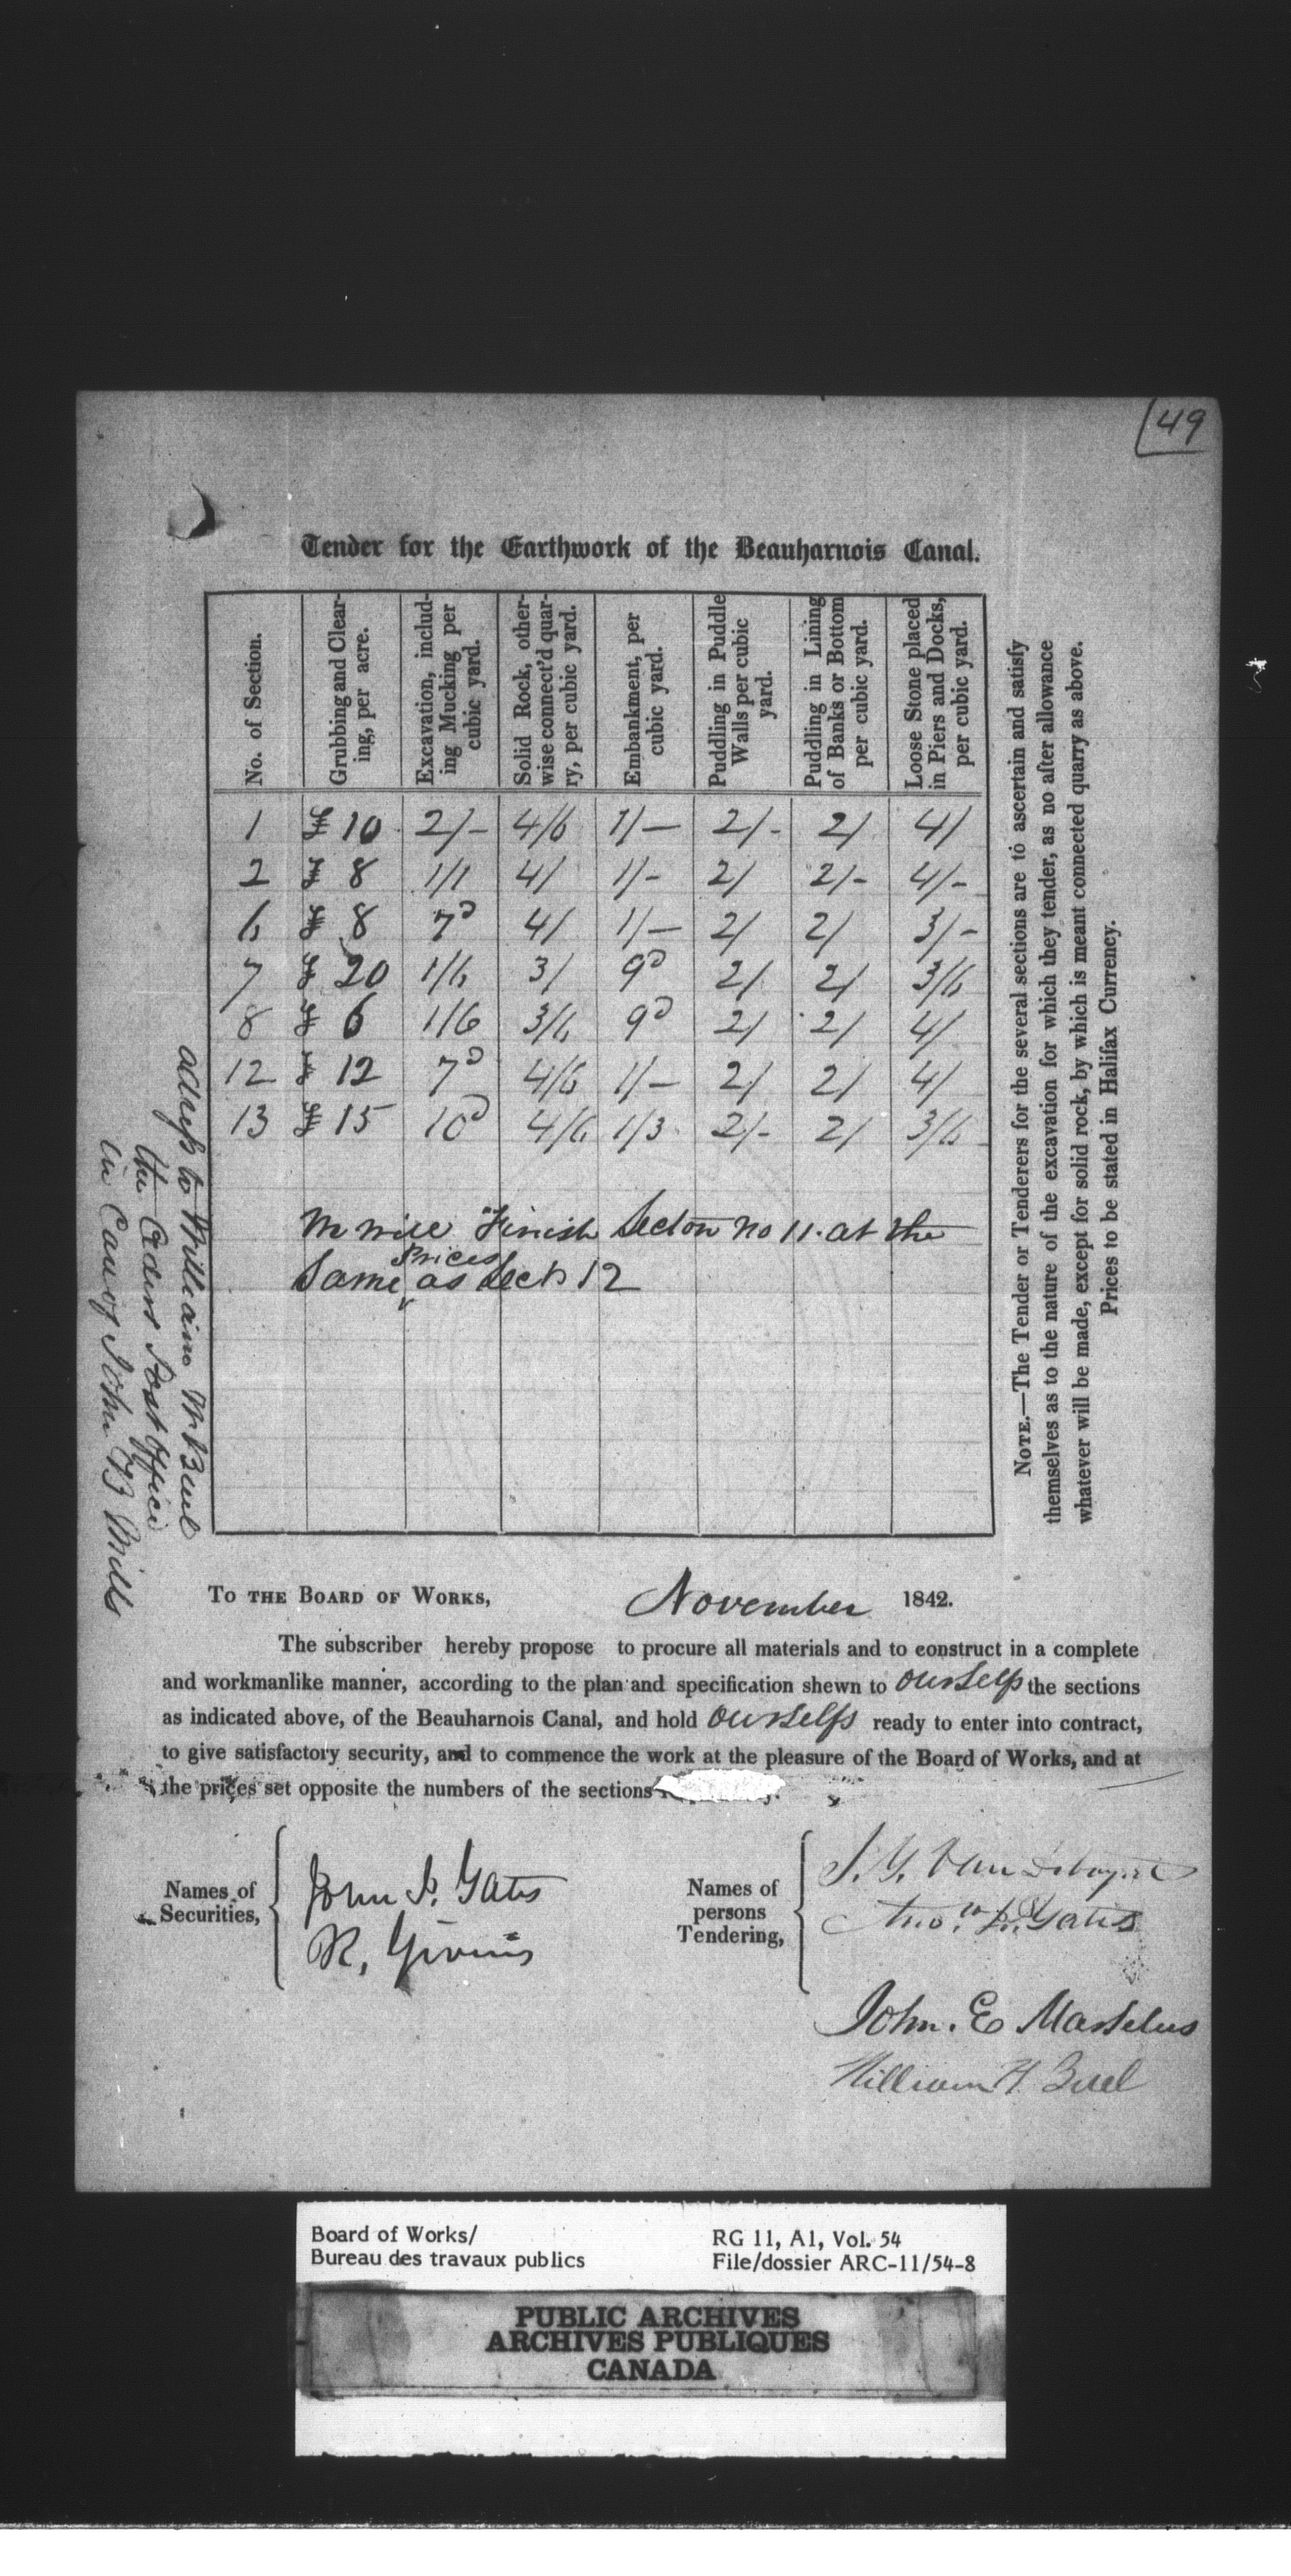 49
Tender for the Earthwork of the Beauharnois Canal.
No. of Section. | Grubbing and Clear-ing, per acre. | Excavation, includ-ing Mucking per cubic yard. | Solid Rock, other-wise connect'd quar-ry, per cubic yard. | Embankment, per cubic yard. | Puddling in Puddle Walls per cubic yard. | Puddling in Lining of Banks or Bottom per cubic yard. | Loose Stone placed in Piers and Docks, per cubic yard.
1 £ 10 2/- 4/6 1/- 2/- 2/ 4/
2 £ 8 1/1 4/ 1/- 2/ 2/- 4/-
6 £ 8 7D 4/ 1/- 2/ 2/ 3/-
7 £ 20 1/6 3/ 9D 2/ 2/ 3/6
8 £ 6 1/6 3/6 9D 2/ 2/ 4/
12 £ 12 7D 4/6 1/- 2/ 2/ 4/
13 £ 15 10D 4/6 1/3 2/- 2/ 3/6
will Finish Section No 11. at the
Same Prices as Sect 12
NOTE.—The Tender or Tenderers for the several sections are to ascertain and satisfy
themselves as to the nature of the excavation for which they tender, as no after allowance
whatever will be made, except for solid rock, by which is meant connected quarry as above.
Prices to be stated in Halifax Currency.
adress to William H Buel
the Ceders Post office
in Care of John B Mills
TO THE BOARD OF WORKS, November 1842.
The subscriber hereby propose to procure all materials and to construct in a complete
and workmanlike manner, according to the plan and specification shewn to ourselfs the sections
as indicated above, of the Beauharnois Canal, and hold ourselfs ready to enter into contract,
to give satisfactory security, and to commence the work at the pleasure of the Board of Works, and at
the prices set opposite the numbers of the sections
Names of Securities,
John P. Gates
R, Givins
Names of persons Tendering,
J. Y. Van
Gates
John. E
William H. Buel
Board of Works/
Bureau des travaux publics
RG 11, A1, Vol. 54
File/dossier ARC-11/54-8
PUBLIC ARCHIVES
ARCHIVES PUBLIQUES
CANADA